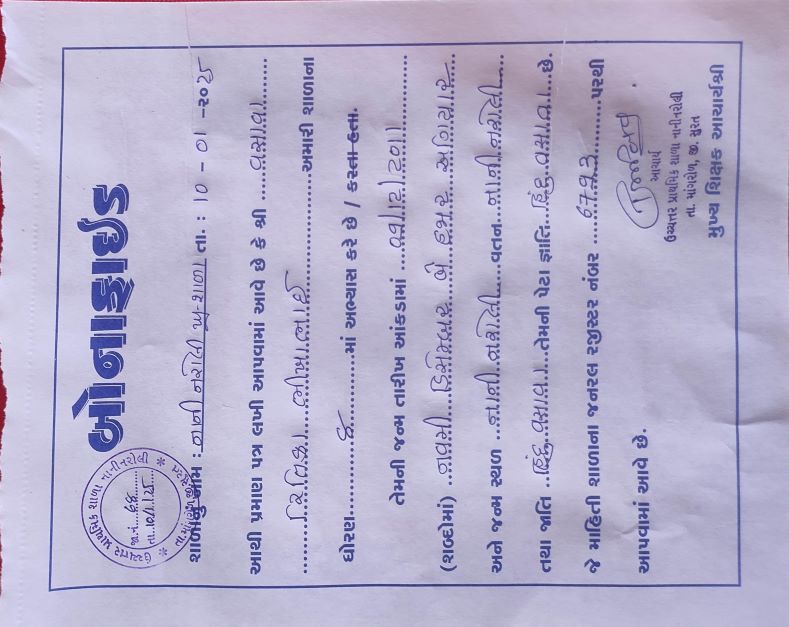 બોનાફાઈડ
ઉચ્ચત્તર પ્રાથમિક શાળા નાનીનરોલી
જા.નં. ૬૬
શાળાનું નામ : નાની નરોલી પ્રા. શાળા તા. : 10 - 01 - ૨૦૨૫
આથી પ્રમાણ પત્ર લખી આપવામાં આવે છે કે શ્રી ....વસાવા....
....રિતિકા ભીખાભાઈ....અમારી શાળાના
ધોરણ....૬....માં અભ્યાસ કરે છે / કરતા હતા.
તેમની જન્મ તારીખ આંકડામાં ...૦૯/૧૨/૨૦૧૧...
(શબ્દોમાં) ..નવમી..ડિસેમ્બર..બે હજાર અગિયાર..
અને જન્મ સ્થળ ..નાની નરોલી....વતન...નાની નરોલી...
તથા જાતિ ..હિંદુ વસાવા..તેમની પેટા જ્ઞાતિ..હિંદુ વસાવા..છે.
જે માહિતી શાળાના જનરલ રજીસ્ટર નંબર ....6793....પરથી
આપવામાં આવે છે.
આચાર્ય
ઉચ્ચત્તર પ્રાથમિક શાળા નાનીનરોલી
તા. માંગરોળ, જી. સુરત
મુખ્ય શિક્ષક આચાર્યશ્રી